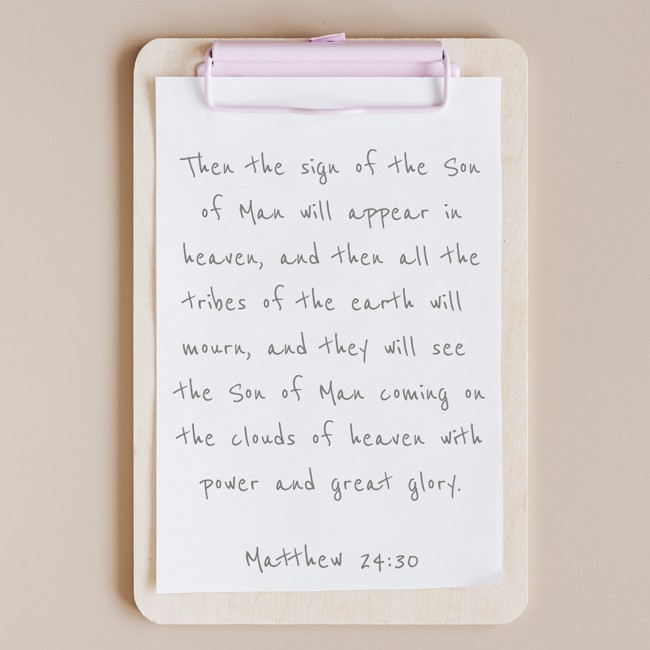 Then the sign of the Son
of Man will appear in
heaven, and then all the
tribes of the earth will
mourn, and they will see
the Son of Man coming on
the clouds of heaven with
power and great glory.
Matthew 24:30